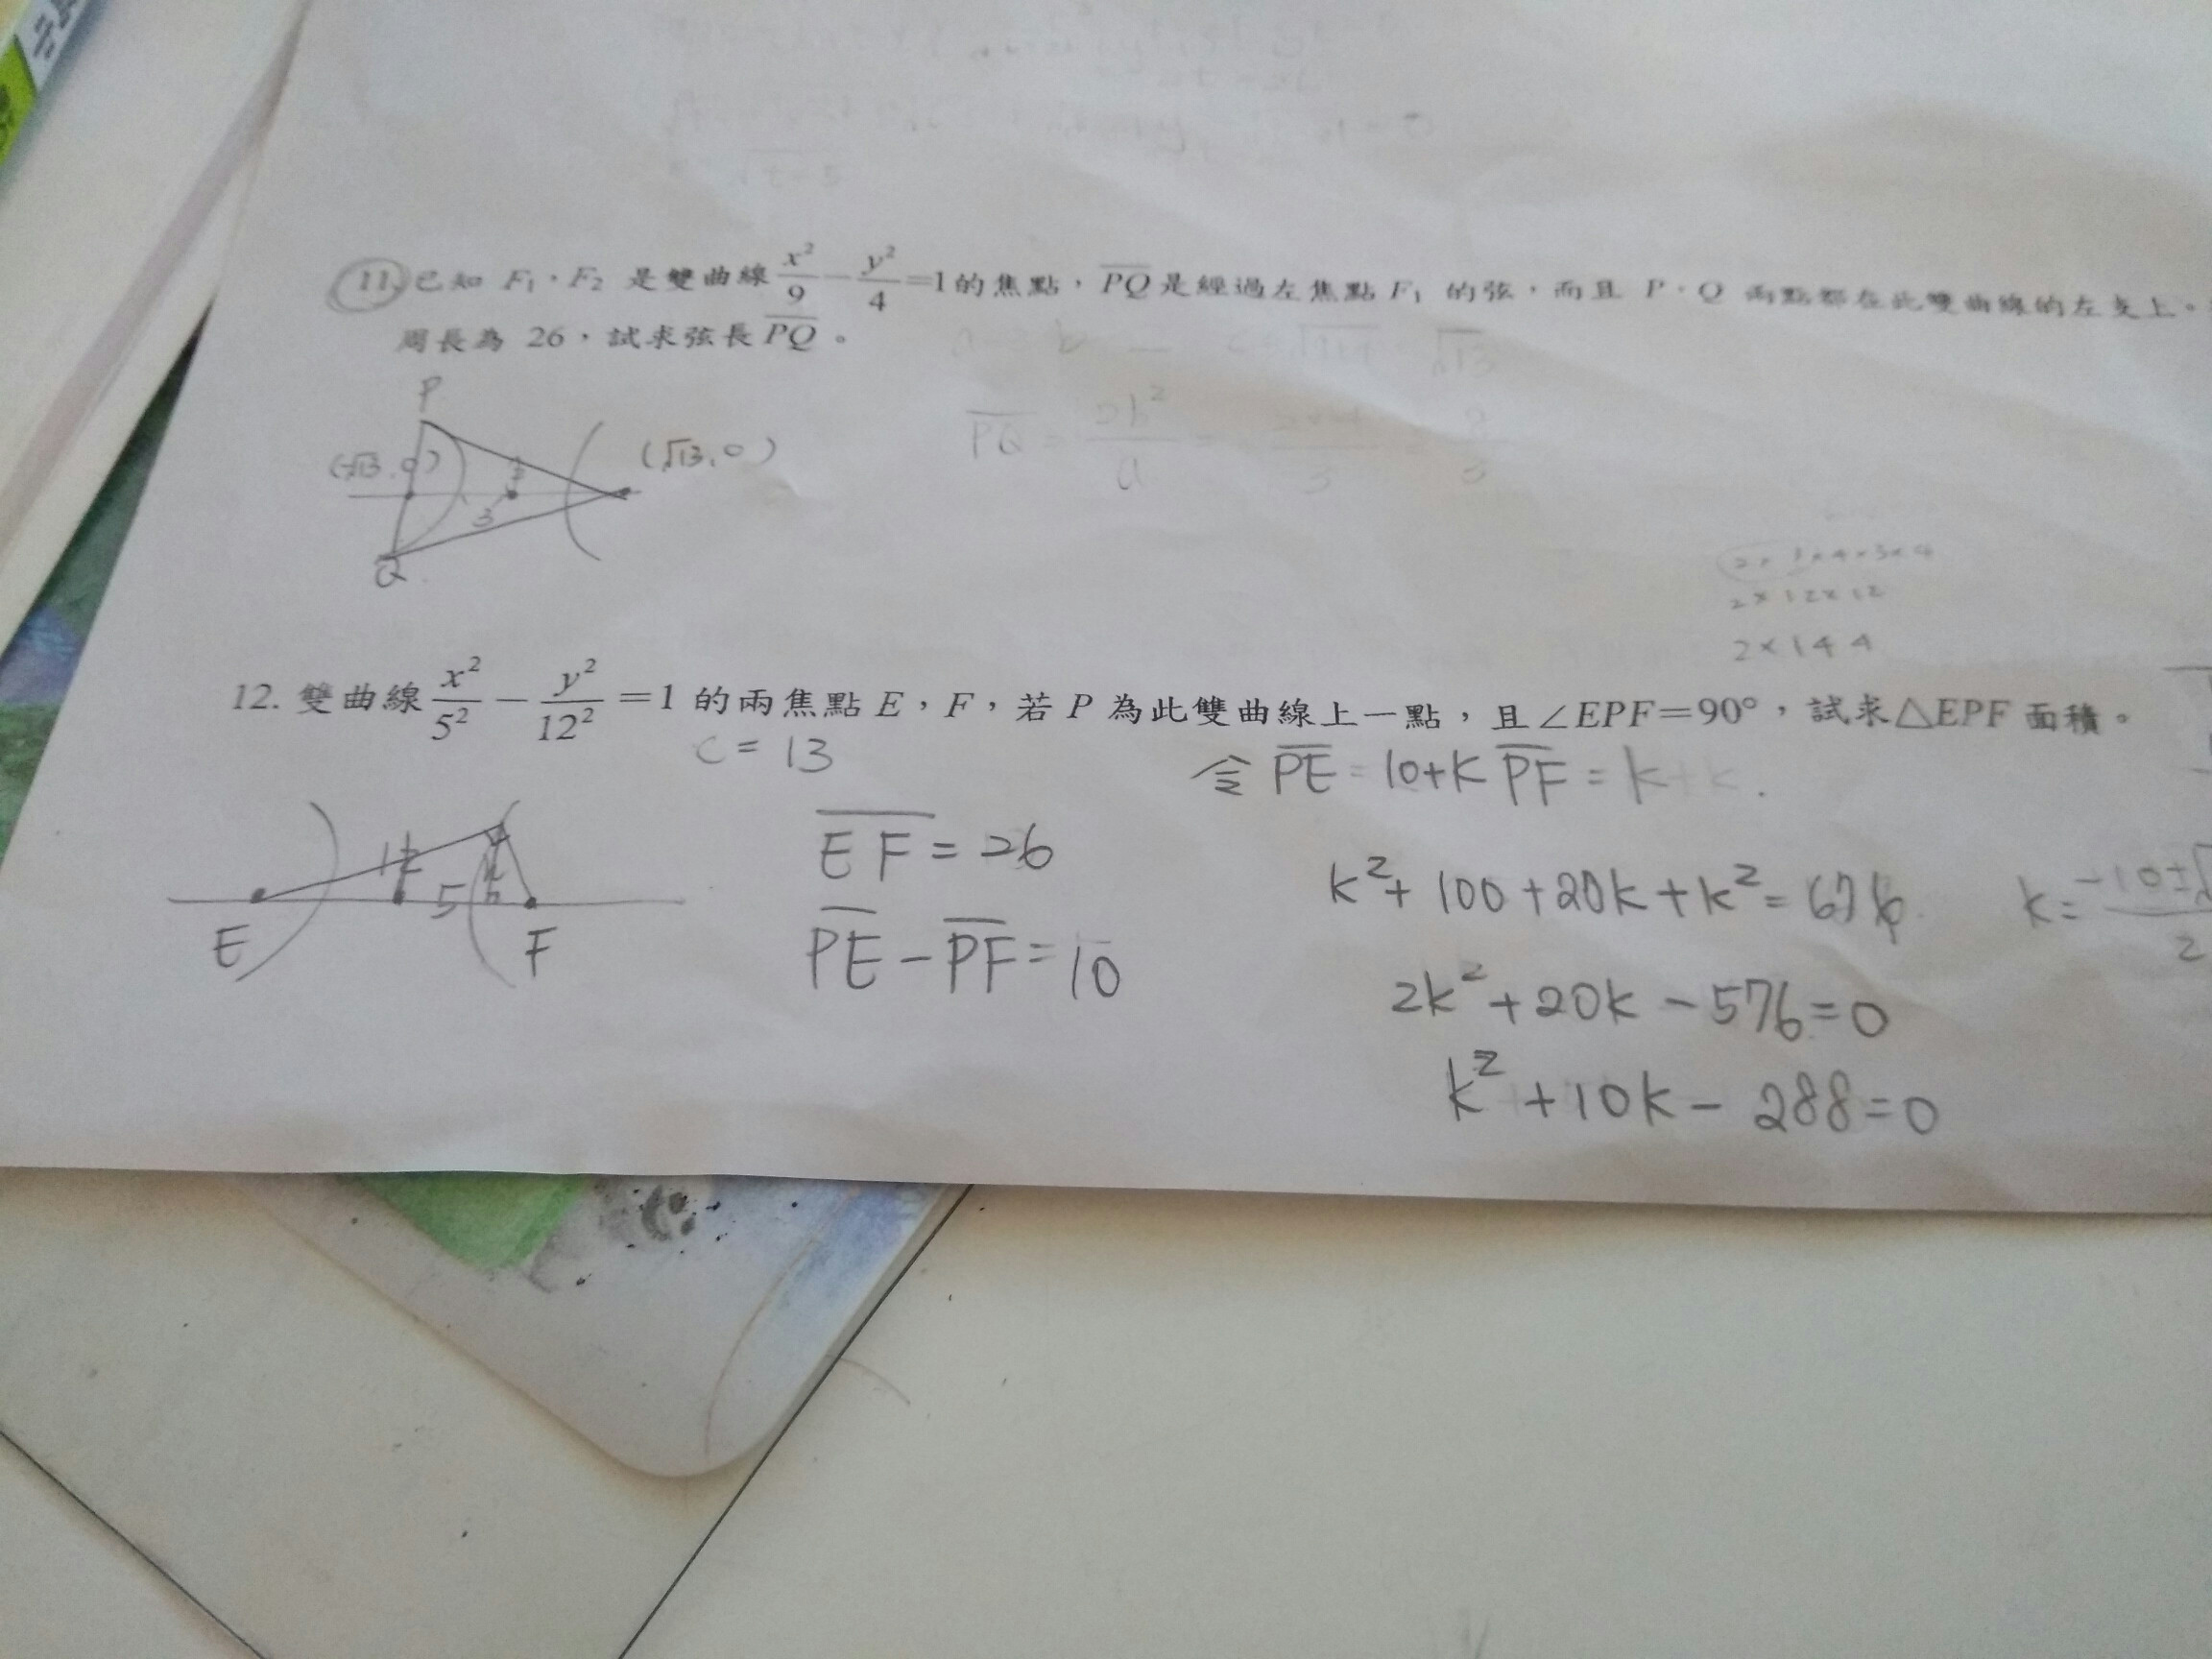 11. 已知 F₁、F₂ 是雙曲線 x²/9 − y²/4 =1的焦點，PQ是經過左焦點 F₁ 的弦，而且 P、Q 兩點都在此雙曲線的左支上。
周長為 26，試求弦長 PQ。
P
(-√13, 0)
(√13, 0)
3
Q
PQ = 2b²/a = 8/3
2×12×12
2×144
12. 雙曲線 x²/5² − y²/12² =1 的兩焦點 E，F，若 P 為此雙曲線上一點，且∠EPF=90°，試求△EPF 面積。
c = 13
令 PE = 10+k PF = k
EF = 26
12
5
E
F
PE − PF = 10
k² + 100 + 20k + k² = 676
k = −10±√
2
2k² + 20k − 576 = 0
k² + 10k − 288 = 0